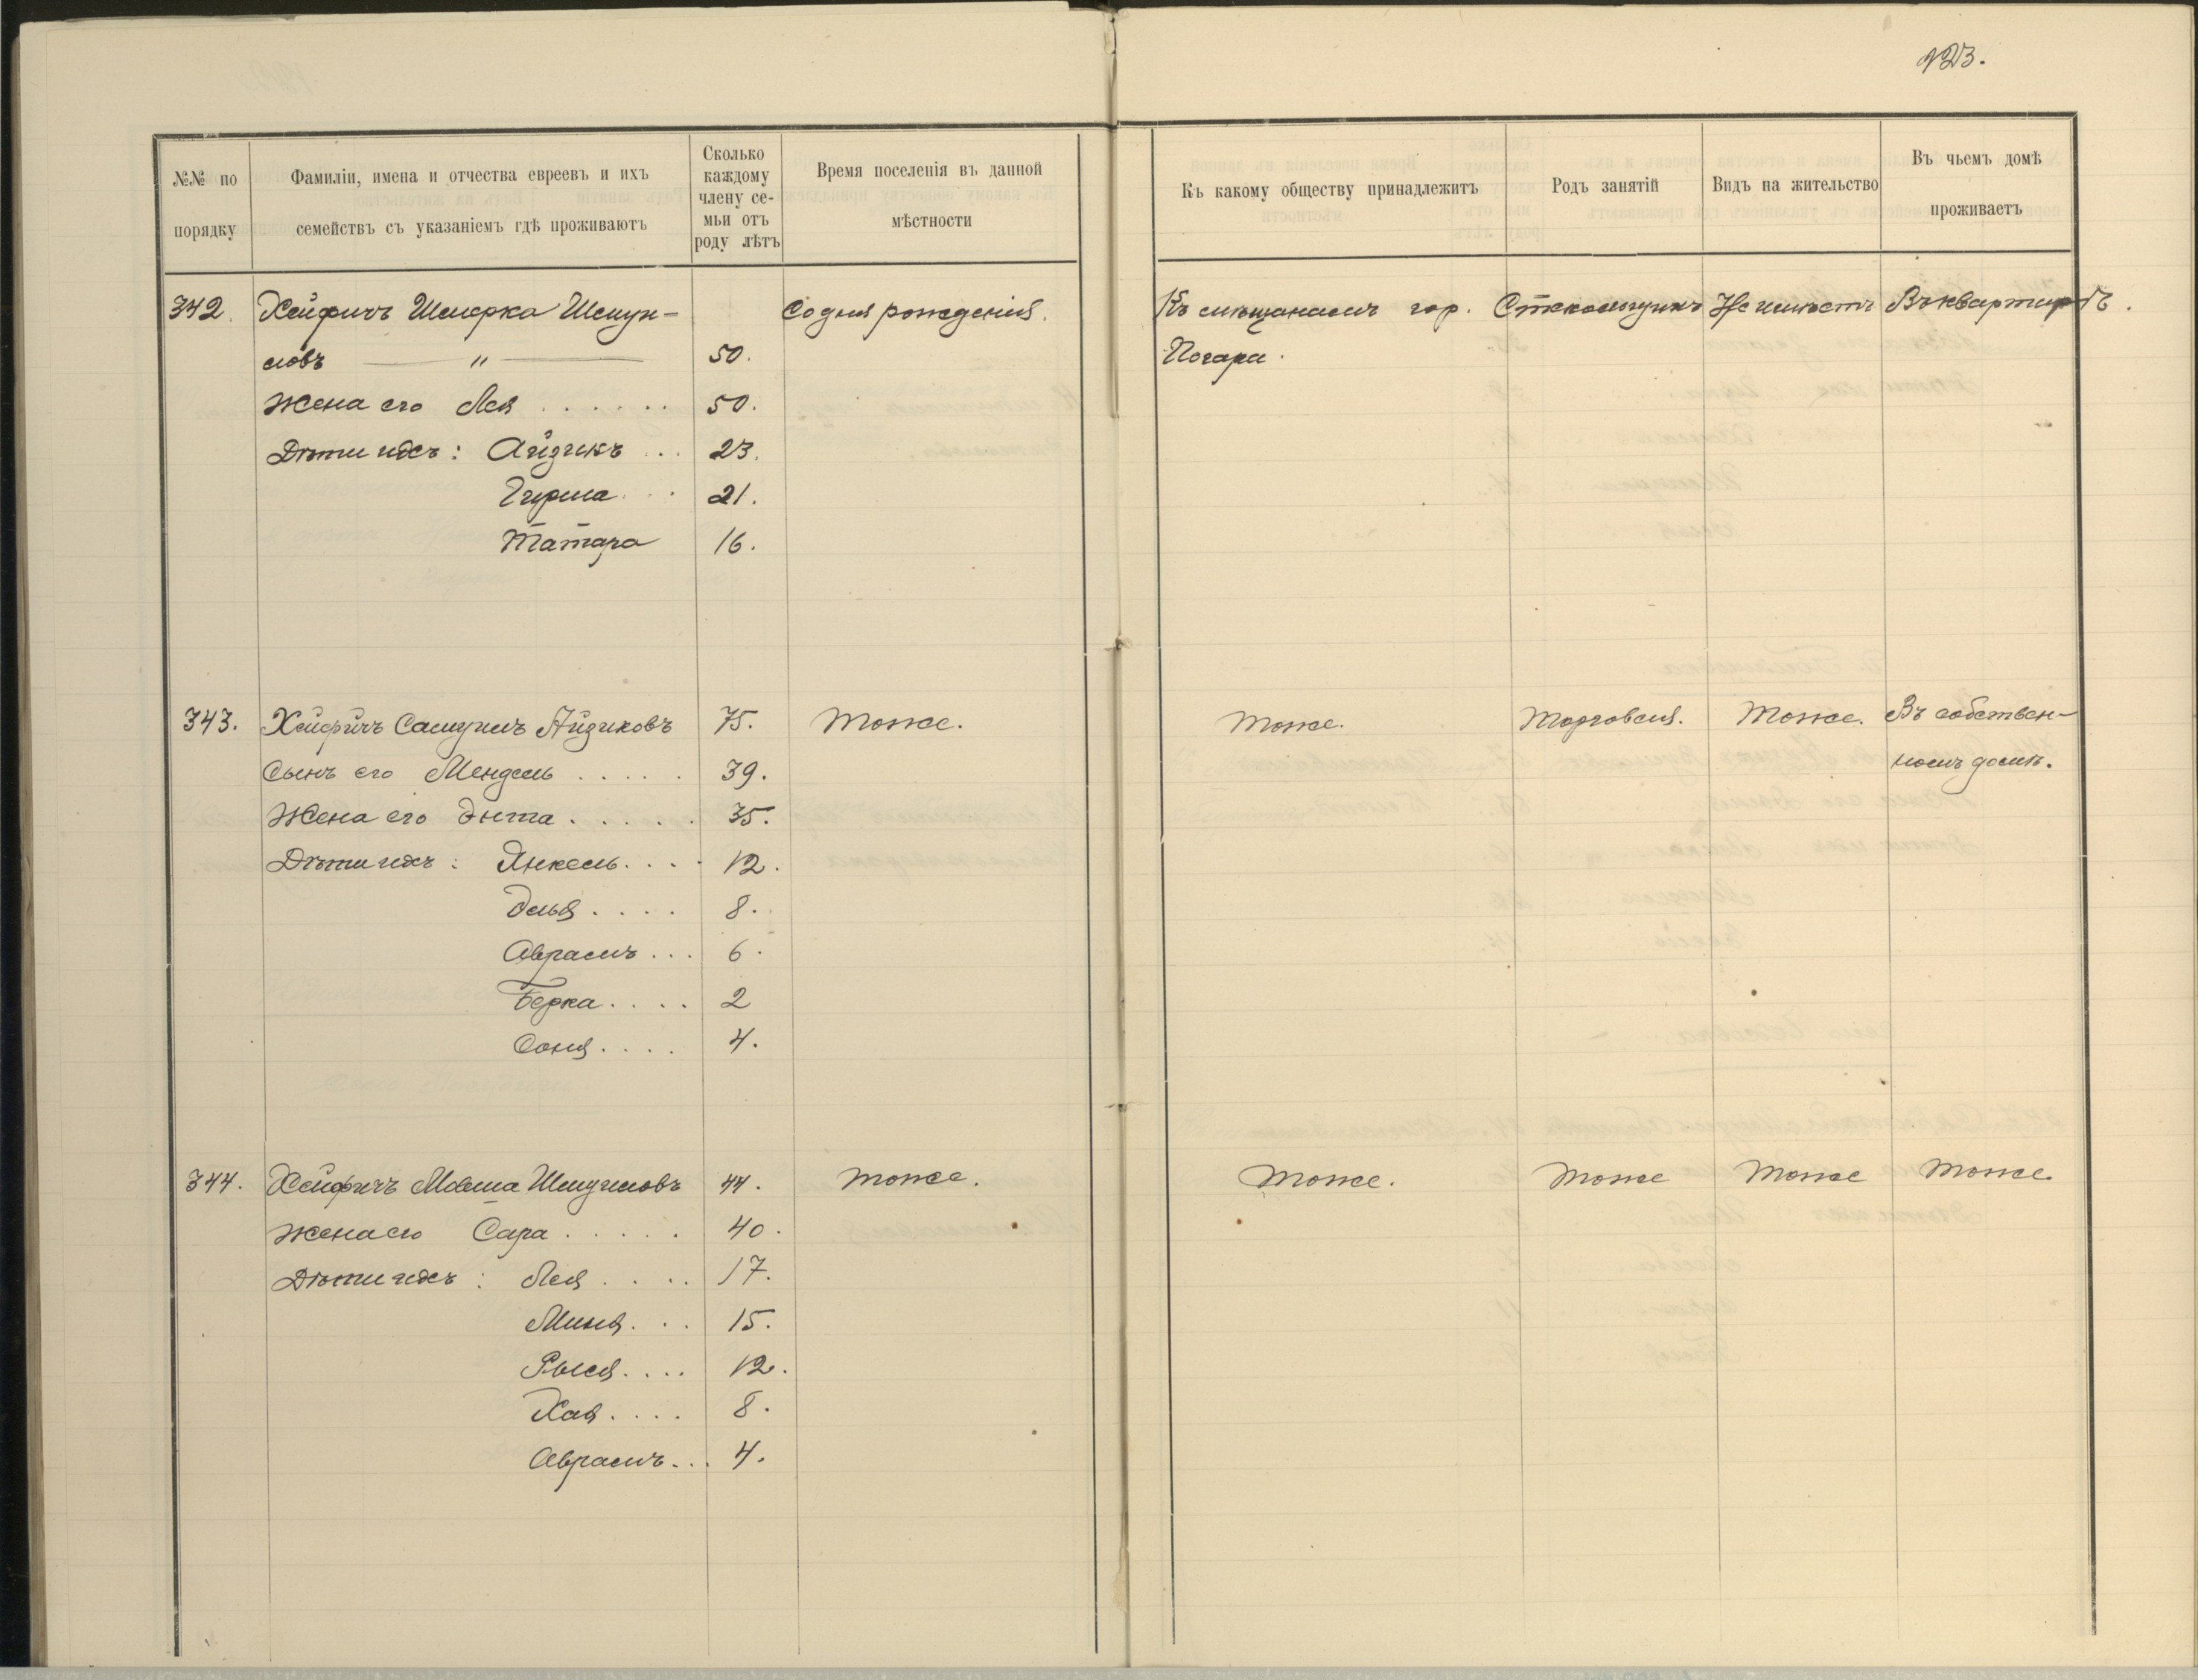 123.
№№ по порядку
Фамиліи, имена и отчества евреевъ и ихъ семействъ съ указаніемъ гдѣ проживаютъ
Сколько каждому члену се-мьи отъ роду лѣтъ
Время поселенія въ данной мѣстности
Къ какому обществу принадлежитъ
Родъ занятій
Видъ на жительство
Въ чьемъ домѣ проживаетъ
342. Хейфичъ Шмерка Шмуй- Со дня рожденія. Къ мѣщанамъ гор. Стекольщикъ Не имѣетъ Въ квартирѣ.
ловъ — " — 50. Погара.
Жена его Лея . . . . . . 50.
Дѣти ихъ: Айзикъ . . . 23.
Гирша . . . 21.
Татара 16.
343. Хейфичъ Самуилъ Айзиковъ 75. Тоже. Тоже. Торговля. Тоже. Въ собствен-
Сынъ его Мендель . . . . . 39. номъ домѣ.
Жена его Энта . . . . . 35.
Дѣти ихъ: Янкель . . . . 12.
Элья . . . . 8.
Абрамъ . . . 6.
Берка . . . . 2
Соня . . . . 4.
344. Хейфичъ Мовша Шмуиловъ 44. Тоже. Тоже. Тоже Тоже Тоже.
Жена его Сара . . . . . 40.
Дѣти ихъ: Лея . . . . 17.
Миня . . . 15.
Рыся . . . . 12.
Хая . . . . 8.
Абрамъ . . . 4.